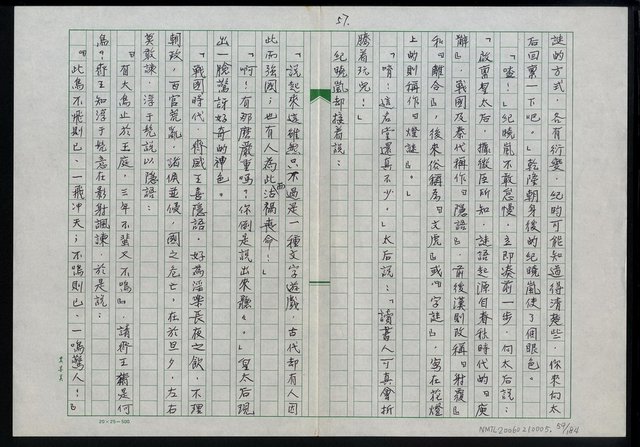 57.
謎的方式,各有衍變。紀昀可能知道得清楚些,你來向太
后回稟一下吧。」乾隆朝身後的紀曉嵐使了個眼色。
「喳!」紀曉嵐不敢怠慢,立即湊前一步,向太后說:
「啟稟皇太后,據微臣所知,謎語起源自春秋時代的『廋
辭』,戰國及秦代稱作『隱語』,前後漢則改稱『射覆』
和『離合』,後來俗稱為『文虎』或『字謎』,寫在花燈
上的則稱作『燈謎』。」
「唷!這名堂還真不少。」太后說:「讀書人可真會折
騰着玩兒!」
紀曉嵐却接着說:
「說起來這雖然只不過是一種文字遊戲,古代却有人因
此而強國;也有人為此而召禍喪命!」
「啊!有那麽嚴重嗎?你倒是說出來聽々。」皇太后現
出一臉驚訝好奇的神色。
「戰國時代,齊威王喜隱語,好為淫樂長夜之飲,不理
朝政,百官荒亂,諸侯並侵,國之危亡,在於旦夕,左右
莫敢諫。淳于髡說以隱語:
『有大鳥止於王庭,三年不蜚又不鳴』,請齊王猜是何
鳥?齊王知淳于髡意在影射諷諫,於是說:
『此鳥不飛則已,一飛沖天;不鳴則已,一鳴驚人!』
20×25=500
NMTL20060210005, 59/184